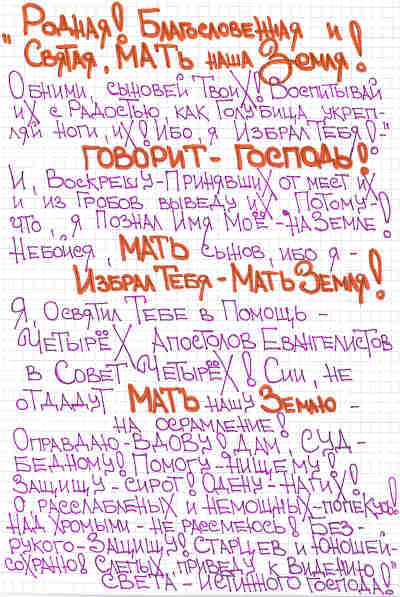 „Родная! Благословенная и
Святая, МАТЬ наша Земля!
Обними сыновей Твоих! Воспитывай
их с Радостью, как Голубица, укреп-
ляй ноги, их! Ибо, я Избрал Тебя!-"
ГОВОРИТ - Господь!
И, Воскрешу-Принявших от мест их
и из гробов выведу их. Потому-
что, я Познал Имя Моё - на Земле!
Небойся, МАТЬ сынов, ибо я -
Избрал Тебя - Мать Земля!
Я, Освятил Тебе в Помощь -
Четырёх Апостолов Евангелистов
в Совет Четырёх! Сии, не
отдадут МАТЬ нашу Землю -
на осрамление!
Оправдаю-Вдову! Дам, Суд -
Бедному! Помогу - Нищему!
Защищу - сирот! Одену - нагих!
О, расслабленых и немощных - попекусь!
Над хромыми - не рассмеюсь! Без-
рукого - Защищу! Старцев и юношей -
сохраню! Слепых, приведу к Видению!
СВЕТА - Истинного Господа!